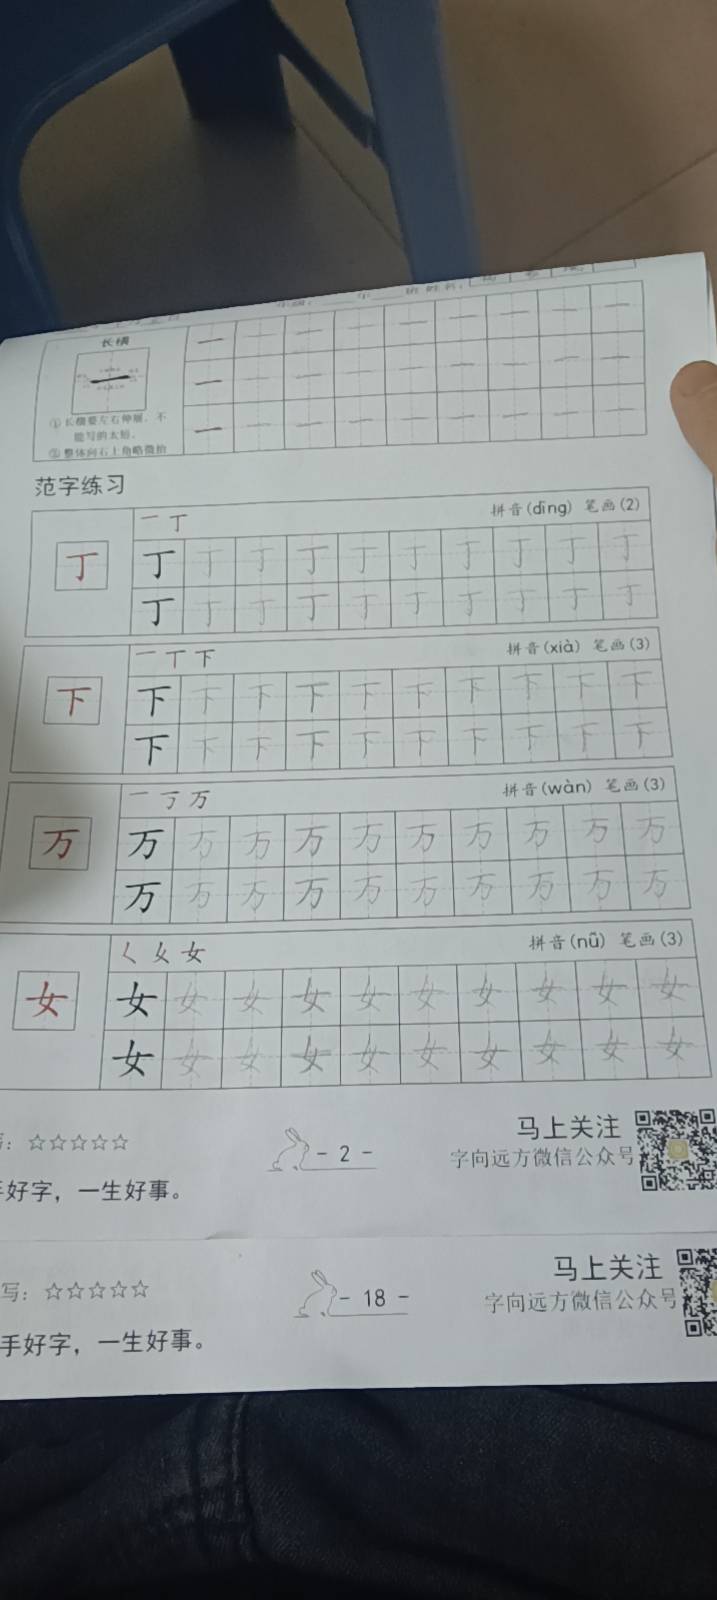 长横
①长横要左右伸展，不
能写的太短。
②整体向右上角略微抬
范字练习
一 丁
拼音(dīng) 笔画(2)
丁 丁 丁 丁 丁 丁 丁 丁 丁 丁 丁
丁 丁 丁 丁 丁 丁 丁 丁 丁 丁
一 丅 下
拼音(xià) 笔画(3)
下 下 下 下 下 下 下 下 下 下 下
下 下 下 下 下 下 下 下 下 下
一 丂 万
拼音(wàn) 笔画(3)
万 万 万 万 万 万 万 万 万 万 万
万 万 万 万 万 万 万 万 万 万
女
拼音(nǚ) 笔画(3)
女 女 女 女 女 女 女 女 女 女 女
女 女 女 女 女 女 女 女 女 女
：☆☆☆☆☆
- 2 -
马上关注
字向远方微信公众号
手好字，一生好事。
写：☆☆☆☆☆
- 18 -
马上关注
字向远方微信公众号
手好字，一生好事。